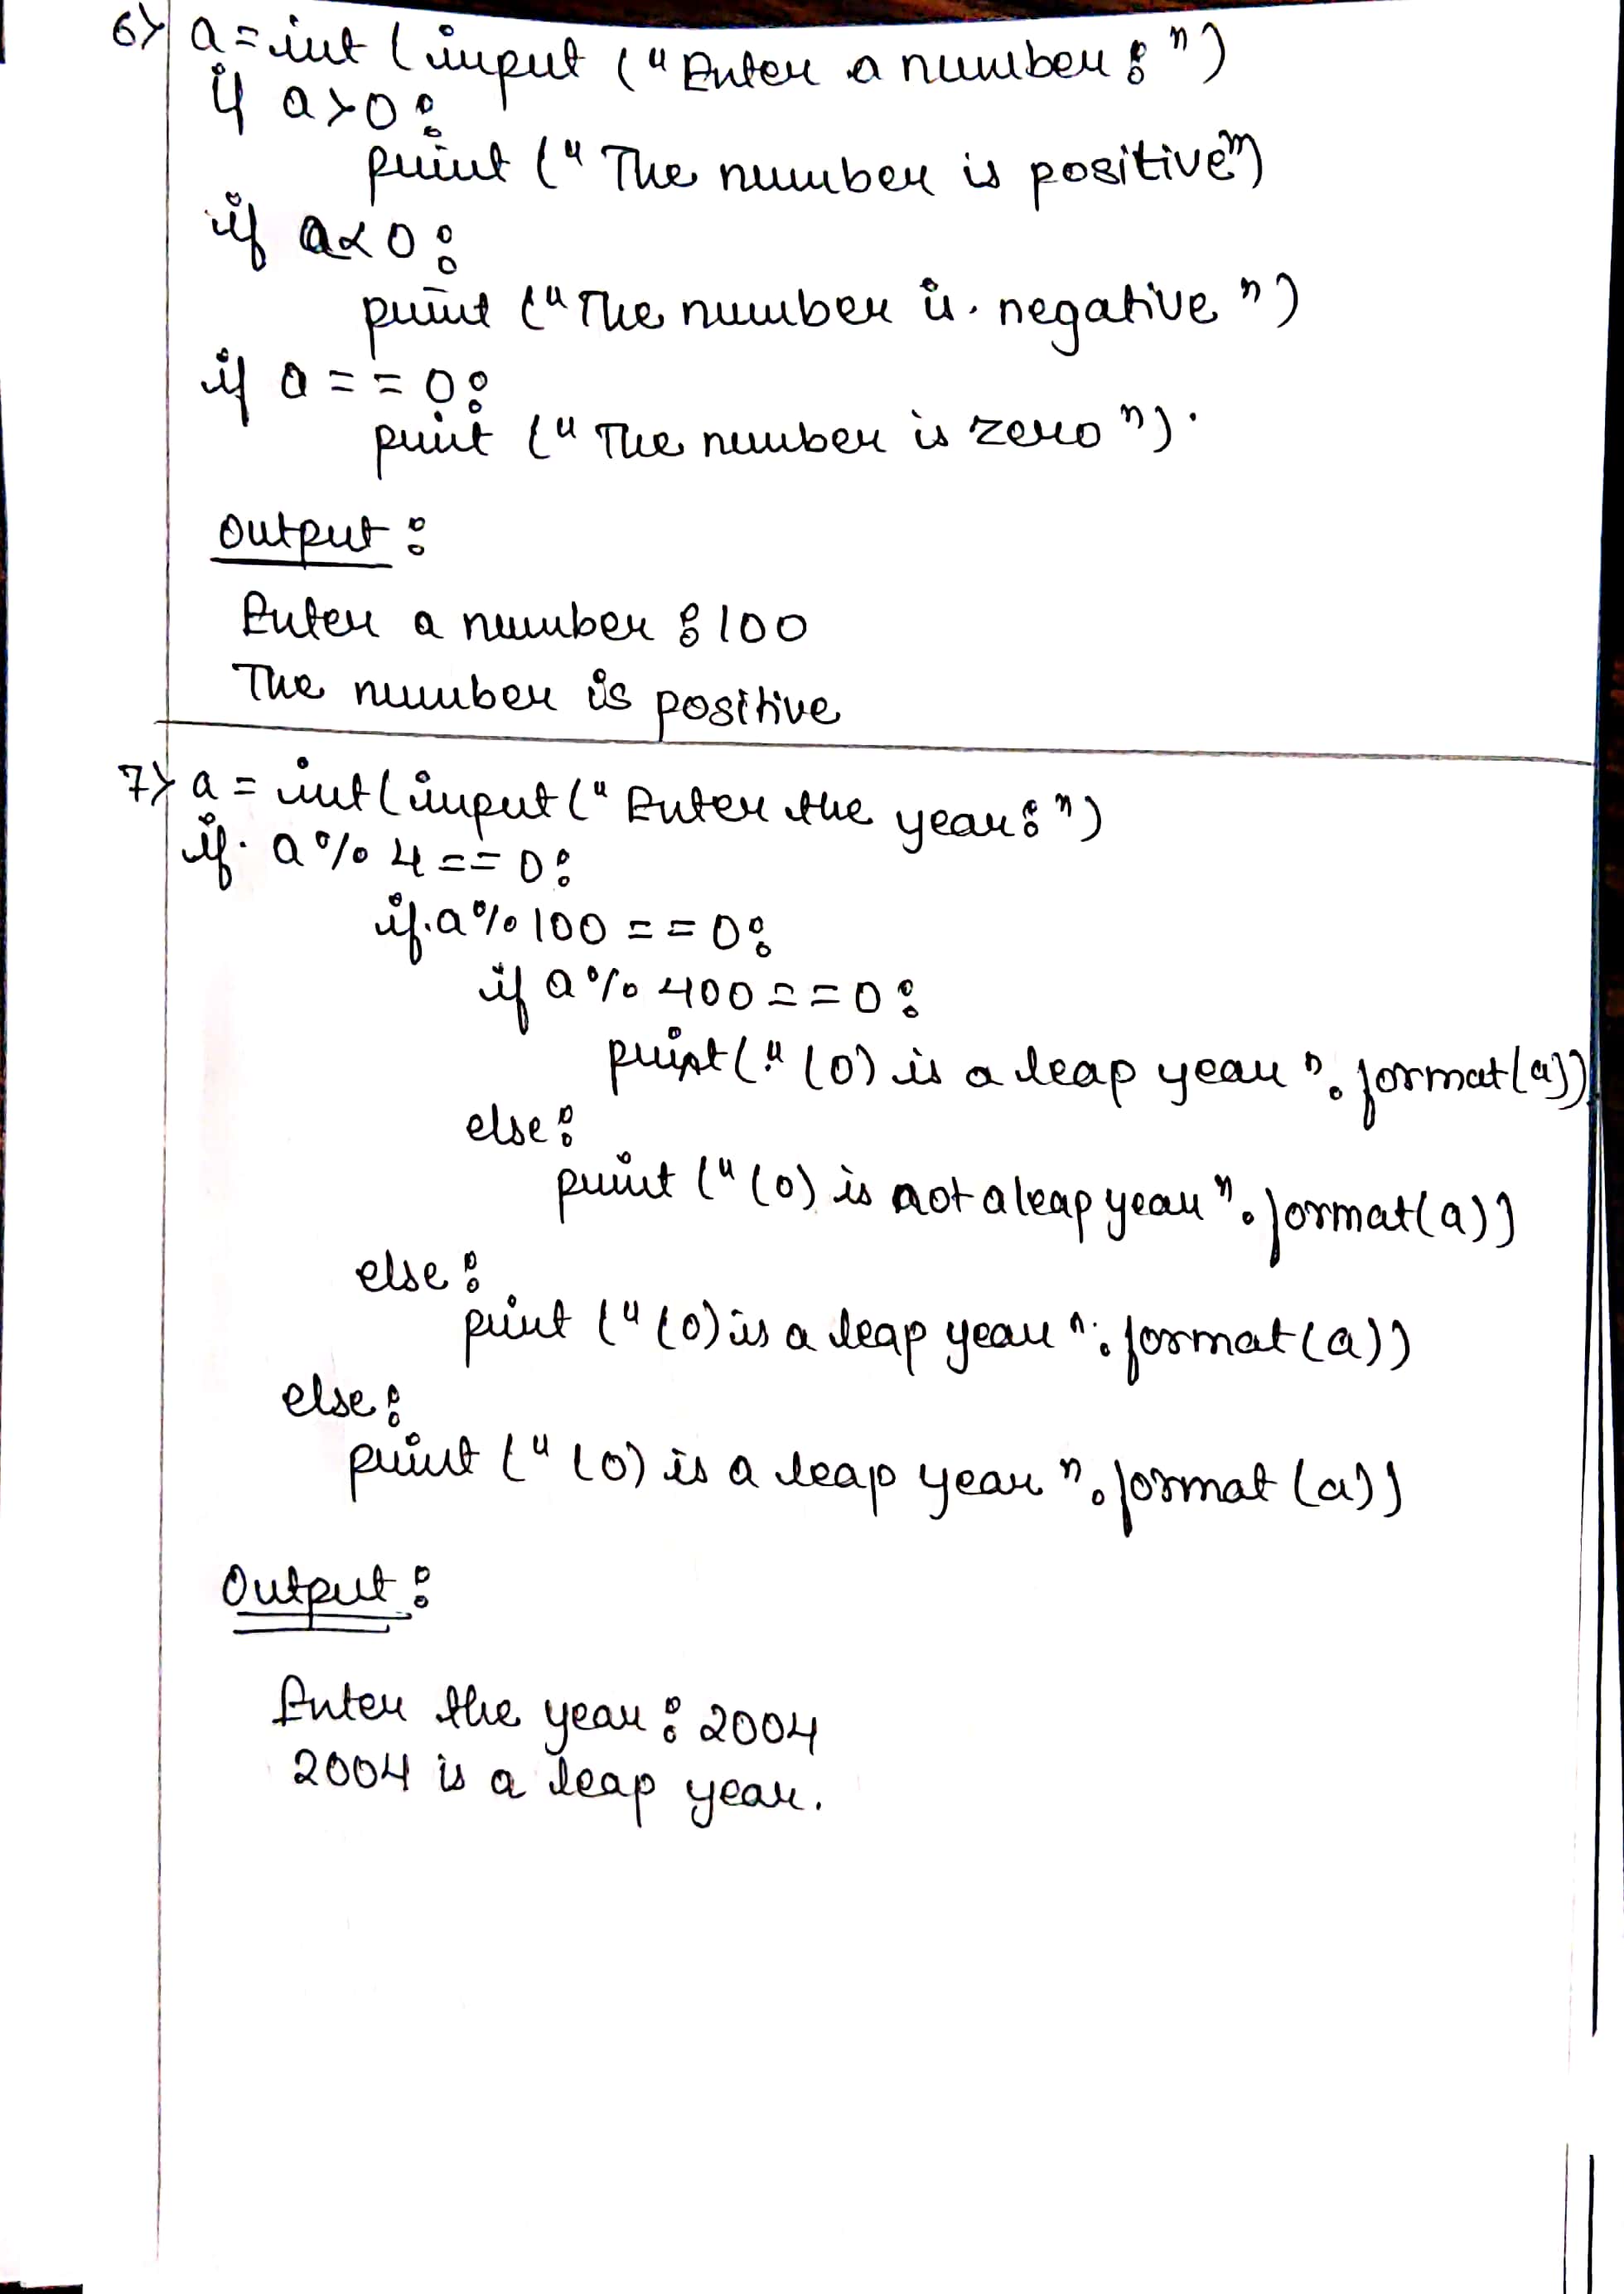 6> a = int (input ("Enter a number : ")
if a>0 :
print (" The number is positive")
if a<0 :
print ("The number is. negative ")
if a = = 0 :
print (" The number is zero ").
Output :
Enter a number : 100
The number is positive
7> a = int(input(" Enter the year : ")
if. a % 4 == 0 :
if. a % 100 = = 0 :
if a % 400 = = 0 :
print (" (0) is a leap year ". format(a))
else :
print (" (0) is not a leap year ". format(a))
else :
print (" (0) is a leap year ". format(a))
else :
print (" (0) is a leap year ". format (a))
Output :
Enter the year : 2004
2004 is a leap year.